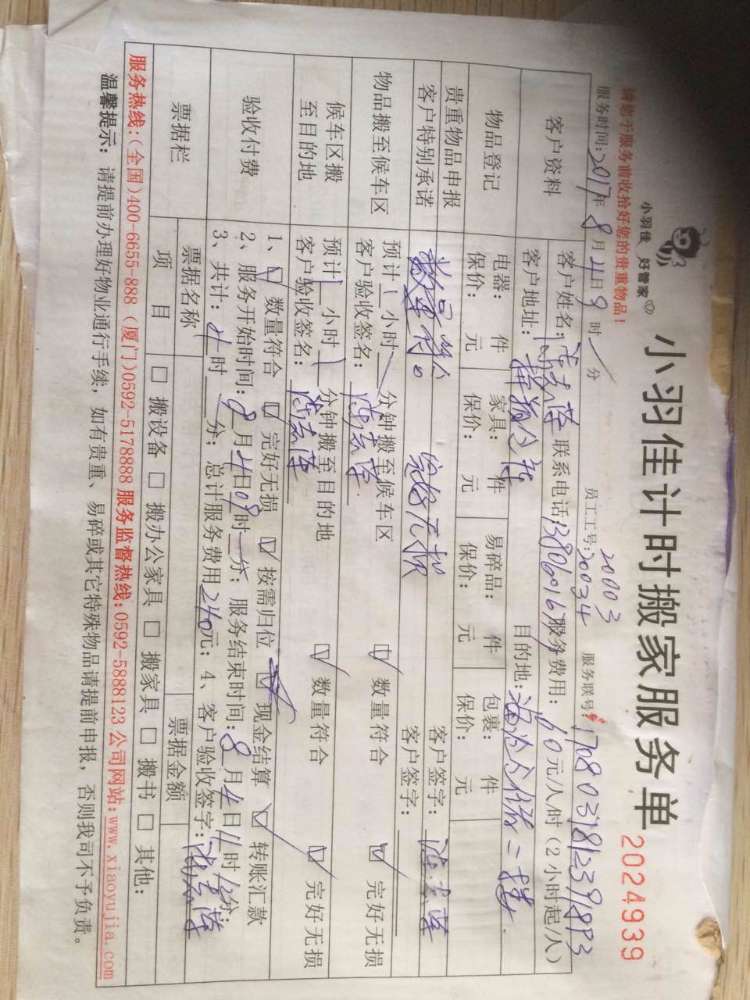 小羽佳 好管家
小羽佳计时搬家服务单
2024939
请您于服务前收拾好您的贵重物品！
员工工号： 20003
20034
服务时间：2017年 8月 4日 9时 分
服务联号：
客户资料
客户姓名： 联系电话： 服务费用： 60元/人/时（2小时起/人）
客户地址： 目的地：
物品登记
电器： 件 家具： 件 易碎品： 件 包裹： 件
保价： 元 保价： 元 保价： 元 保价： 元
贵重物品申报
客户特别承诺
数量符合 完好无损
客户签字：
客户签字：
物品搬至候车区
预计 1 小时 分钟搬至候车区 ☑ 数量符合 ☑ 完好无损
客户验收签名：
候车区搬
至目的地
预计 1 小时 分钟搬至目的地 ☑ 数量符合 ☑ 完好无损
客户验收签名：
验收付费
1、☑ 数量符合 ☑ 完好无损 ☑ 按需归位 ☑ 现金结算 ☑ 转账汇款
2、服务开始时间：8月4日09时 分；服务结束时间：8月4日11时 分；
3、共计：2时 分；总计服务费用240元；4、客户验收签字：
票据栏
票据名称 票据金额
项 目 □ 搬设备 □ 搬办公家具 □ 搬家具 □ 搬书 □ 其他：
服务热线：(全国)400-6655-888 (厦门)0592-5178888 服务监督热线：0592-5888123 公司网站：www.xiaoyujia.com
温馨提示：请提前办理好物业通行手续，如有贵重、易碎或其它特殊物品请提前申报，否则我司不予负责。